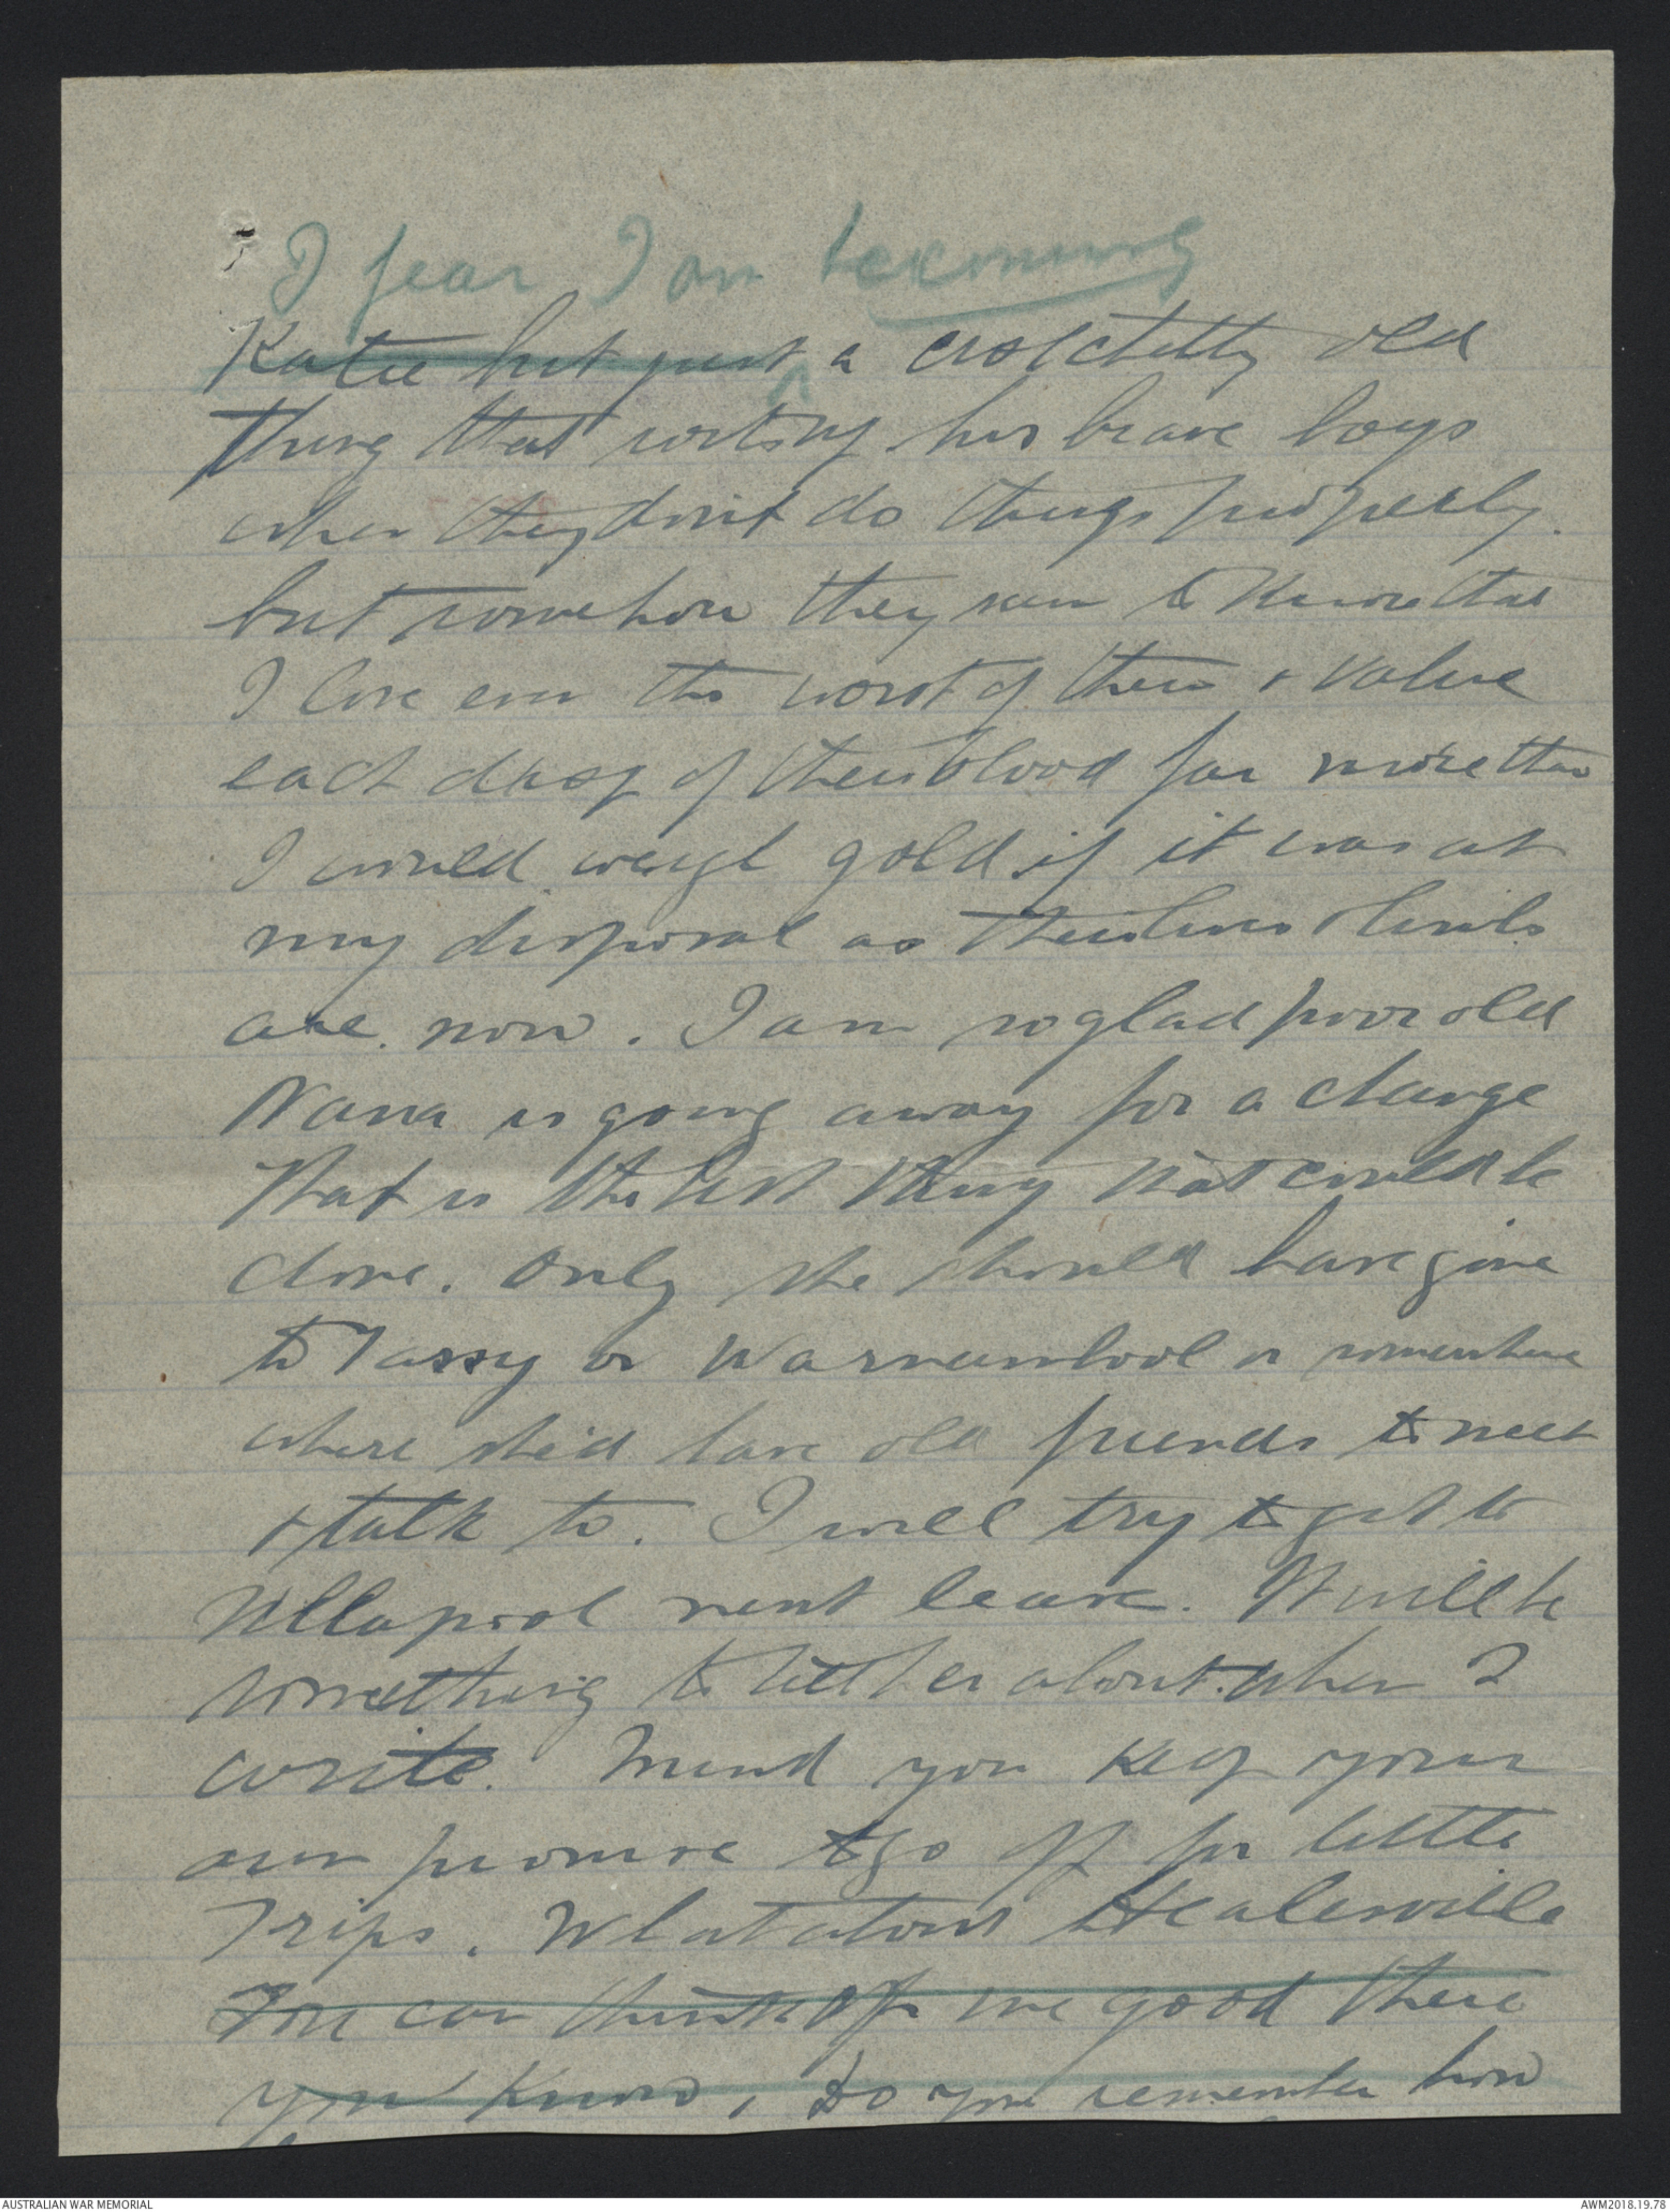 I fear I am becoming
Katie but just ^ a crotchetty old
thing that his brave boys
when they don't do things properly.
but somehow they seem to know that
I love even the worst of them & value
each drop of their blood far more than
I would weigh gold if it was at
my disposal as their lives & limbs
are now. I am so glad poor old
Nana is going away for a change
That is the best thing that could be
done. Only she should have gone
to Tassy or Warrnambool or somewhere
where she'd have old friends to meet
& talk to. I will try to get to
Ullapool next leave. It will be
something to tell her about when I
write. Mind you keep your
own promise to go off for little
Trips. What about Healesville
You can think of me good there
you know, Do you remember how